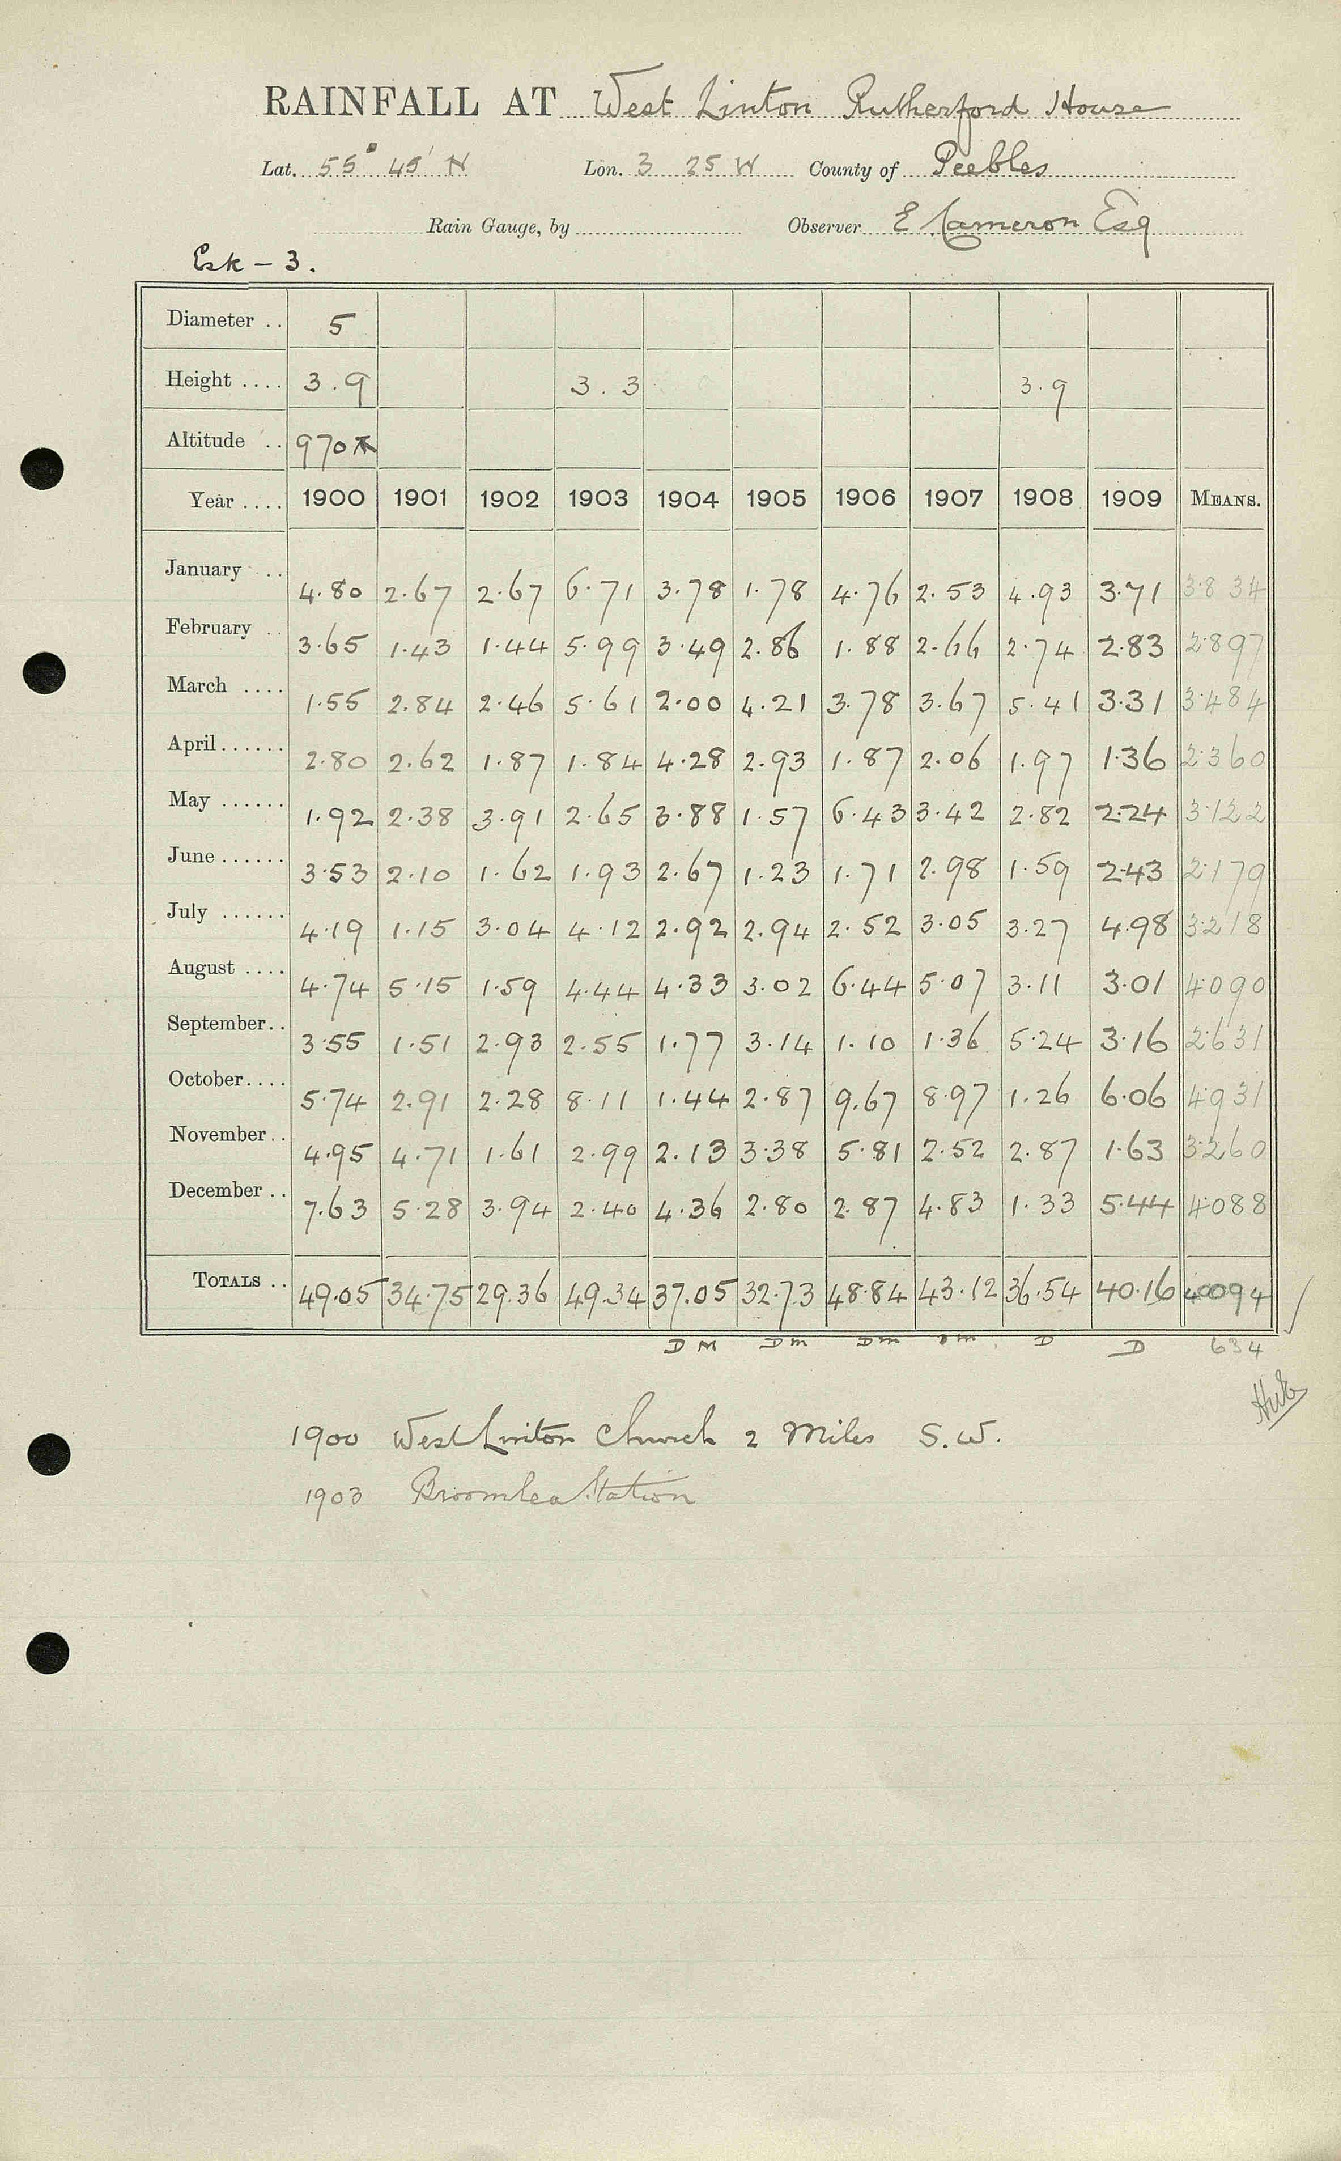 RAINFALL AT West Linton Rutherford House
Lat. 55° 45' N Lon. 3 25 W County of Peebles
Rain Gauge, by Observer E Cameron Esq
Esk - 3.
Diameter .. 5
Height .... 3.9 3.3 3.9
Altitude .. 970
Year .... 1900 1901 1902 1903 1904 1905 1906 1907 1908 1909 MEANS.
January .. 4.80 2.67 2.67 6.71 3.78 1.78 4.76 2.53 4.93 3.71 3.834
February .. 3.65 1.43 1.44 5.99 3.49 2.86 1.88 2.66 2.74 2.83 2.897
March .... 1.55 2.84 2.46 5.61 2.00 4.21 3.78 3.67 5.41 3.31 3.484
April ...... 2.80 2.62 1.87 1.84 4.28 2.93 1.87 2.06 1.97 1.36 2.360
May ...... 1.92 2.38 3.91 2.65 3.88 1.57 6.43 3.42 2.82 2.24 3.122
June ...... 3.53 2.10 1.62 1.93 2.67 1.23 1.71 2.98 1.59 2.43 2.179
July ...... 4.19 1.15 3.04 4.12 2.92 2.94 2.52 3.05 3.27 4.98 3.218
August .... 4.74 5.15 1.59 4.44 4.33 3.02 6.44 5.07 3.11 3.01 4.090
September.. 3.55 1.51 2.93 2.55 1.77 3.14 1.10 1.36 5.24 3.16 2.631
October.... 5.74 2.91 2.28 8.11 1.44 2.87 9.67 8.97 1.26 6.06 4.931
November.. 4.95 4.71 1.61 2.99 2.13 3.38 5.81 2.52 2.87 1.63 3.260
December .. 7.63 5.28 3.94 2.40 4.36 2.80 2.87 4.83 1.33 5.44 4.088
TOTALS .. 49.05 34.75 29.36 49.34 37.05 32.73 48.84 43.12 36.54 40.16 40094
D M D m D m D m D D 634
1900 West Linton Church 2 Miles S.W.
1903 Broomlea Station